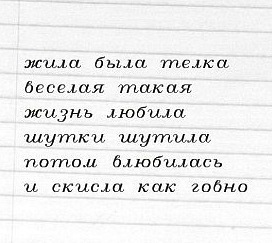 жила была телка
веселая такая
жизнь любила
шутки шутила
потом влюбилась
и скисла как говно